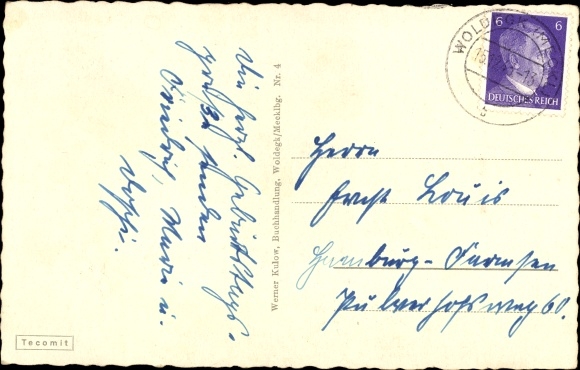 Die herzl. Geburtstags-
grüße senden
Friedrich, Marie u.
Werner Kulow, Buchhandlung, Woldegk/Mecklbg. Nr. 4
Tecomit
WOLDEGK
6 6
DEUTSCHES REICH
b
Herrn
Ernst Louis
Hamburg-Farmsen
Pulverhofsweg 60.